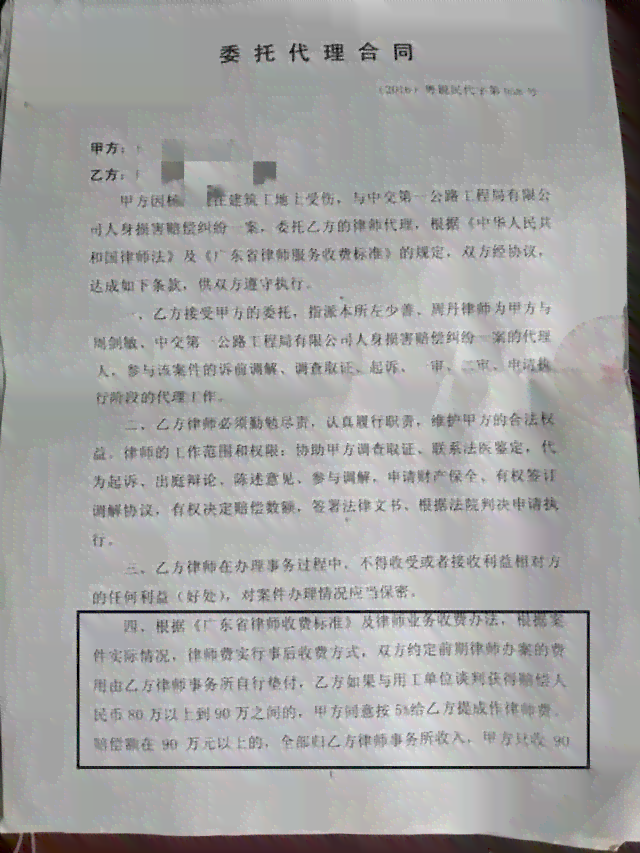 委托代理合同
(2016)粤
甲方:
乙方:
甲方因杨 在建筑工地上受伤,与中交第一公路工程局有限公
司人身损害赔偿纠纷一案,委托乙方的律师代理,根据《中华人民共
和国律师法》及《广东省律师服务收费标准》的规定,双方经协议,
达成如下条款,供双方遵守执行。
一、乙方接受甲方的委托,指派本所左少善、周丹律师为甲方与
周剑敏、中交第一公路工程局有限公司人身损害赔偿纠纷一案的代理
人,参与该案件的诉前调解、调查取证、起诉、一审、二审、申请执
行阶段的代理工作。
二、乙方律师必须勤勉尽责,认真履行职责,维护甲方的合法权
益。律师的工作范围和权限:协助甲方调查取证、联系法医鉴定,代
为起诉、出庭辩论、陈述意见、参与调解,申请财产保全、有权签订
调解协议,有权决定赔偿数额,签署法律文书、根据法院判决申请执
行。
三、乙方律师在办理事务过程中,不得收受或者接收利益相对方
的任何利益(好处),对案件办理情况应当保密。
四、根据《广东省律师收费标准》及律师业务收费办法,根据案
件实际情况,律师费实行事后收费方式,双方约定前期律师办案的费
用由乙方律师事务所自行垫付,乙方如果与用工单位谈判获得赔偿人
民币80万以上到90万之间的,甲方同意按5%给乙方提成作律师费。
赔偿额在90万元以上的,全部归乙方律师事务所收入,甲方只收90
1